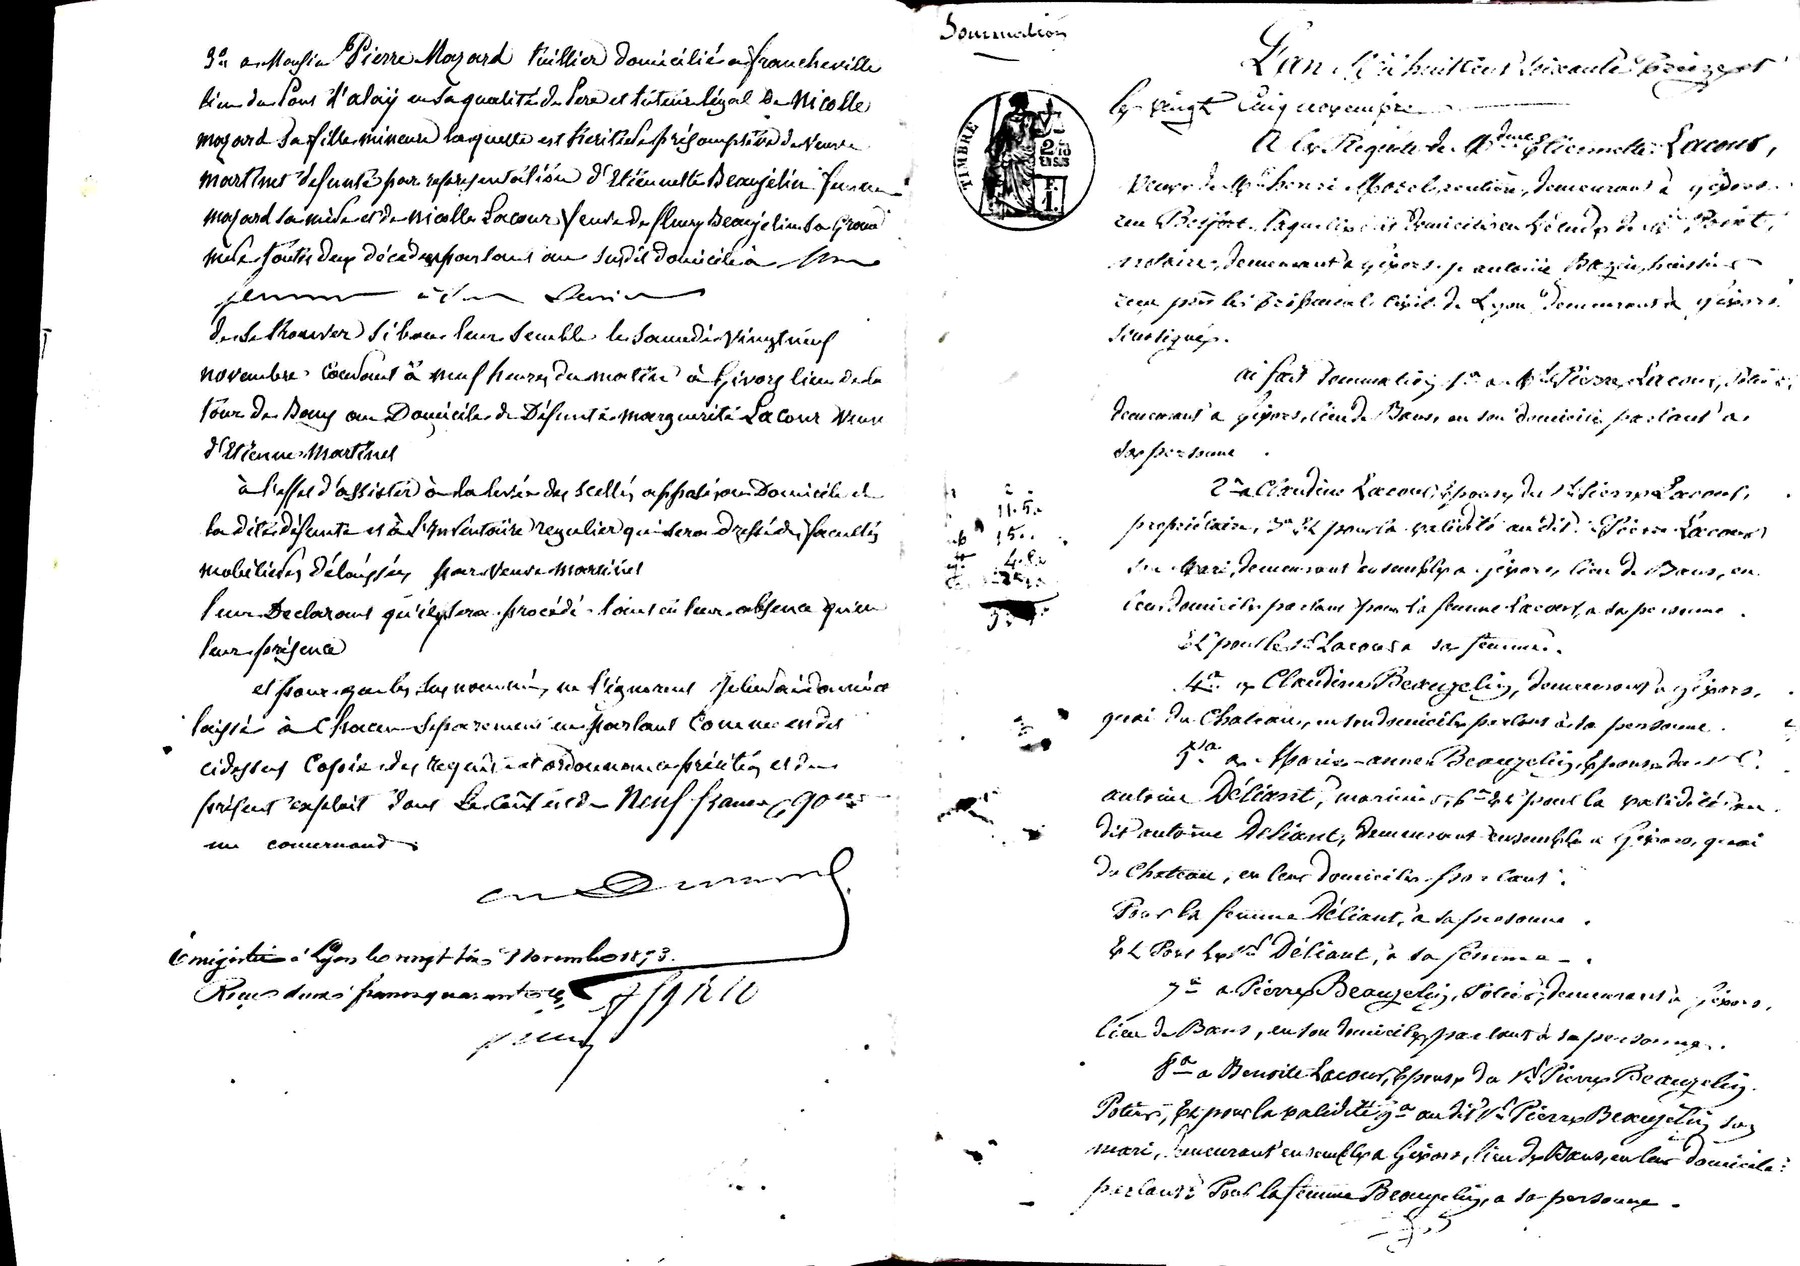 3° a Monsieur Pierre Mozard tuillier domicilié a francheville
lieu du Pont d'alaÿ en sa qualité de Pere et tuteur légal de Nicolle
mozard sa fille mineure laquelle est héritière présomptive de veuve
martinet défunte par représentation d'Etiennette Beaujelin femme
mozard sa mère et de Nicolle Lacour veuve de fleury Beaujelin sa Grand
mère toutes deux décédées parlant au susdit domicile à
femme
de se trouver si bon leur semble le samedi vingt neuf
novembre courant à neuf heures du matin à Givors lieu de la
tour de Bans au Domicile de Défunte marguerite Lacour veuve
d'Etienne Martinet
à l'effet d'assister à la levée des scellés apposés au Domicile de
la dite défunte et à l'Inventaire régulier qui sera dressé des facultés
mobilières délaissées par veuve Martinet
leur Declarant qu'il y sera procédé tant en leur absence qu'en
leur présence
et pour que les susnommés ne l'ignorent je leur ai donné et
laissé à chacun séparément en parlant comme est dit
cidessus Copie des requête et ordonnance précitées et du
présent exploit dont le coût est de Neuf francs 90 ces
me concernant
Enregistré à Lyon le vingt six Novembre 1873.
Reçu deux francs quarante
Sommation
TIMBRE
2/10
EN SUS
F.
1.
L'an Mil huit cent soixante treize et
le vingt cinq novembre
A la Requête de Mme Etiennette Lacour,
veuve de Mr henri Morel rentière, demeurant à givors
rue Belfort, laquelle élit domicile en l'étude de Me Point,
notaire, demeurant à givors je antoine Bazin, huissier
reçu près le tribunal civil de Lyon demeurant à givors
soussigné.
ai fait sommation 1° a Mr Pierre Lacour, Potier,
demeurant a givors, lieu de Bans, en son domicile parlant a
sa personne
2° a Claudine Lacour, Epouse du sr Pierre Lacour,
propriétaire, 3° Et pour la validité au dit Pierre Lacour
son Mari, demeurant ensemble a givors, lieu de Bans, en
leur domicile parlant pour la femme Lacour, a sa personne.
Et pour le sr Lacour a sa femme.
4° a Claudine Beaugelin, demeurant a givors,
quai du Chateau, en son domicile parlant à sa personne.
5° a Marie-anne Beaugelin, Epouse du sr
antoine Déliant, marinier, 6° Et pour la validité au
dit antoine Déliant, demeurant ensemble a Givors, quai
du Chateau, en leur domicile parlant.
Pour la femme Déliant, à sa personne.
Et Pour le sr Déliant, à sa femme.
7° a Pierre Beaugelin, Potier, demeurant à givors,
lieu de Bans, en son domicile parlant à sa personne.
8° a Benoite Lacour, Epouse du sr Pierre Beaugelin
Potier, Et pour la validité 9° au dit sr Pierre Beaugelin son
mari, demeurant ensemble a Givors, lieu de Bans, en leur domicile
parlant: Pour la femme Beaugelin, a sa personne.